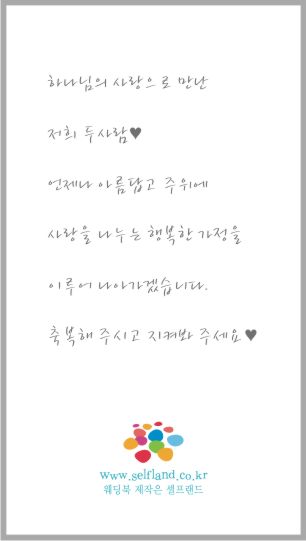 하나님의 사랑으로 만난
저희 두사람♥
언제나 아름답고 주위에
사랑을 나누는 행복한 가정을
이루어 나아가겠습니다.
축복해 주시고 지켜봐 주세요♥
www.selfland.co.kr
웨딩북 제작은 셀프랜드